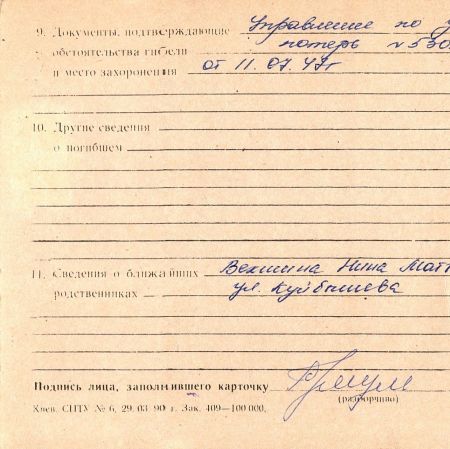 9. Документы, подтверждающие Управление по
обстоятельства гибели потерь №530
и место захоронения от 11.07.47г
10. Другие сведения
о погибшем
11. Сведения о ближайших Векшина Нина Мат
родственниках ул. Куйбышева
Подпись лица, заполнившего карточку
(разборчиво)
Киев. СПТУ № 6, 29. 03. 90 г. Зак. 409—100 000.